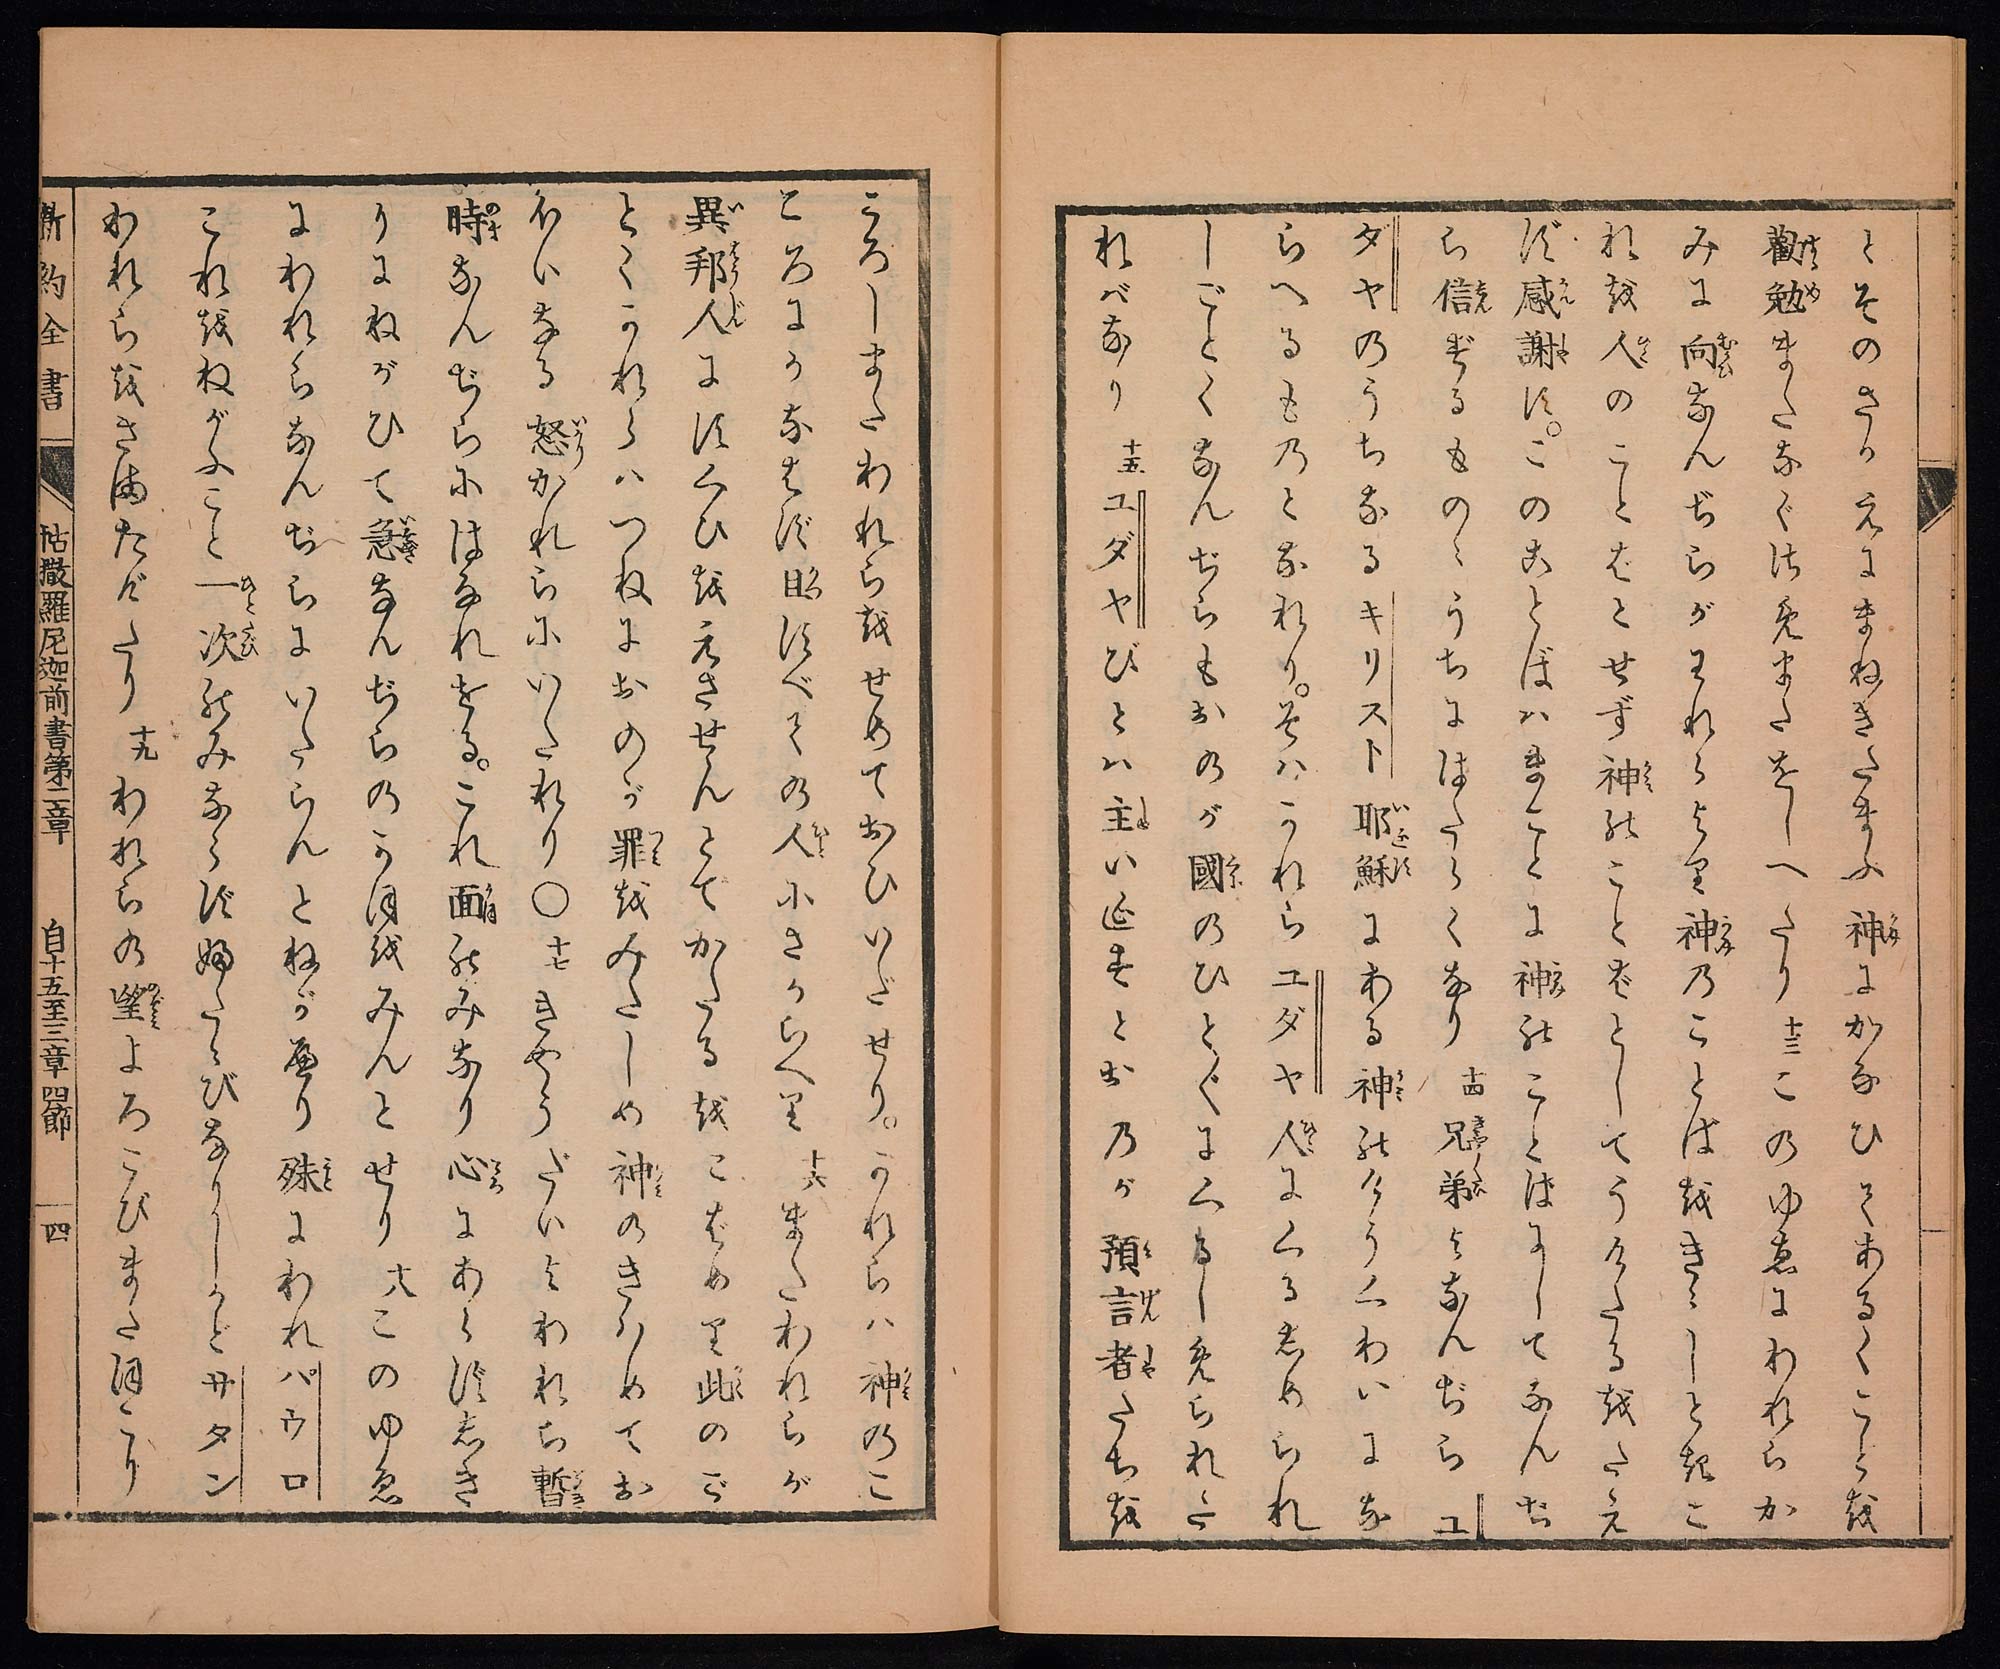 とそのさかえにまねきたまふ神にかなひてあるくことを
勸勉またなぐさめまたをしへたり 十三このゆゑにわれらか
みに向なんぢらがわれらより神のことばをききしときこ
れを人のことばとせず神のことばとしてうけたるをたえ
ず感謝す。このことばハまことに神のことばにしてなんぢ
ら信ずるもののうちにはたらくなり 十四兄弟よなんぢらユ
ダヤのうちなるキリスト耶穌にある神のけうくわいにな
らへるものとなれり。そハかれらユダヤ人にくるしめられ
しごとくなんぢらもおのが國のひとびとにくるしめられた
れバなり 十五ユダヤびとハ主いゑすとおのが預言者たちを
ころしまたわれらをせめておひいだせり。かれらハ神のこ
ころにかなはず且すべての人にさからへり 十六またわれらが
異邦人にすくひをえさせんとてかたるをこばめり此のご
とくかれらハつねにおのが罪をみたしめ神のきはめてお
ほいなる怒かれらにいたれり〇 十七きやうだいよわれら暫
時なんぢらにはなれをる。これ面のみなり心にあらずしき
りにねがひて急なんぢらのかほをみんとせり 十八このゆゑ
にわれらなんぢらにいたらんとねがへり殊にわれパウロ
これをねがふこと一次のみならず婦たたびなりしかどサタン
われらをさまたげたり 十九われらの望よろこびまたほこり
新約全書 帖撒羅尼迦前書第二章 自十五至三章四節 四